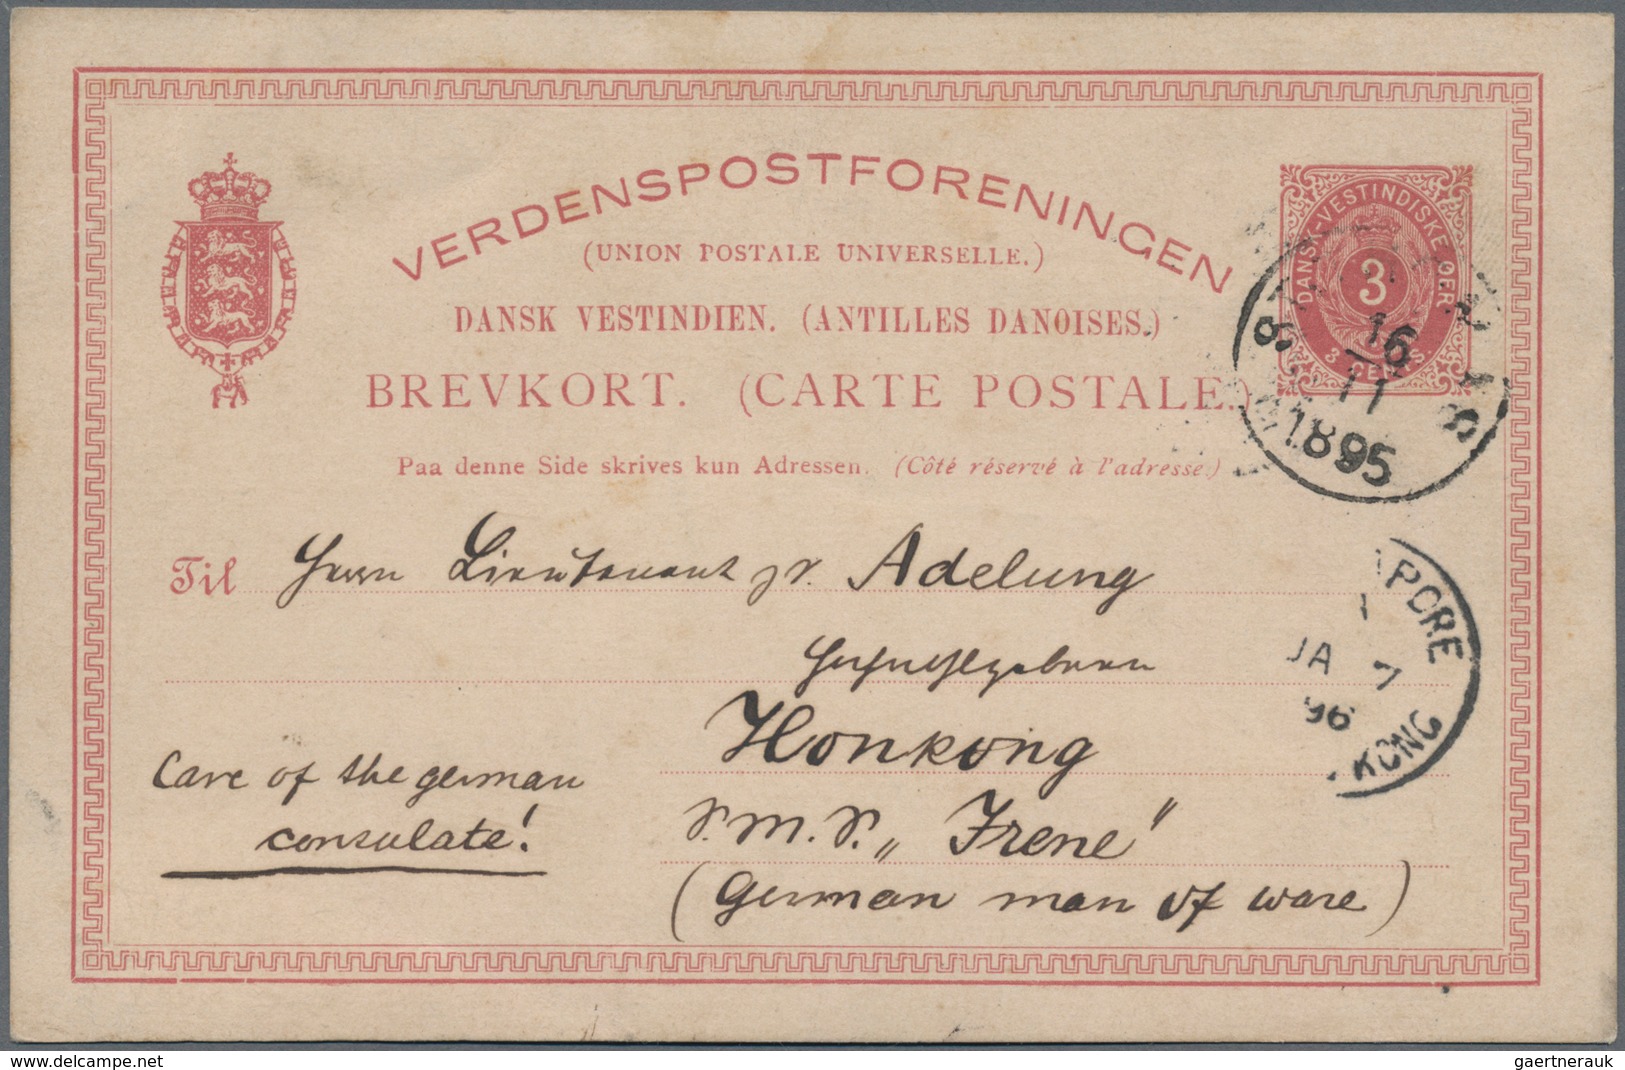 VERDENSPOSTFORENINGEN
(UNION POSTALE UNIVERSELLE.)
DANSK VESTINDIEN. (ANTILLES DANOISES.)
BREVKORT. (CARTE POSTALE.)
Paa denne Side skrives kun Adressen. (Côté réservé à l'adresse.)
DANSK VESTINDISKE ØER
3
3 CENTS.
16
11
1895
Til Herrn Lieutenant zr. Adelung
PORE
JA 7
96
KONG
Honkong
S.M.S. „Irene"
(German man of ware)
Care of the german
consulate!
www.delcampe.net
gaertnerauk